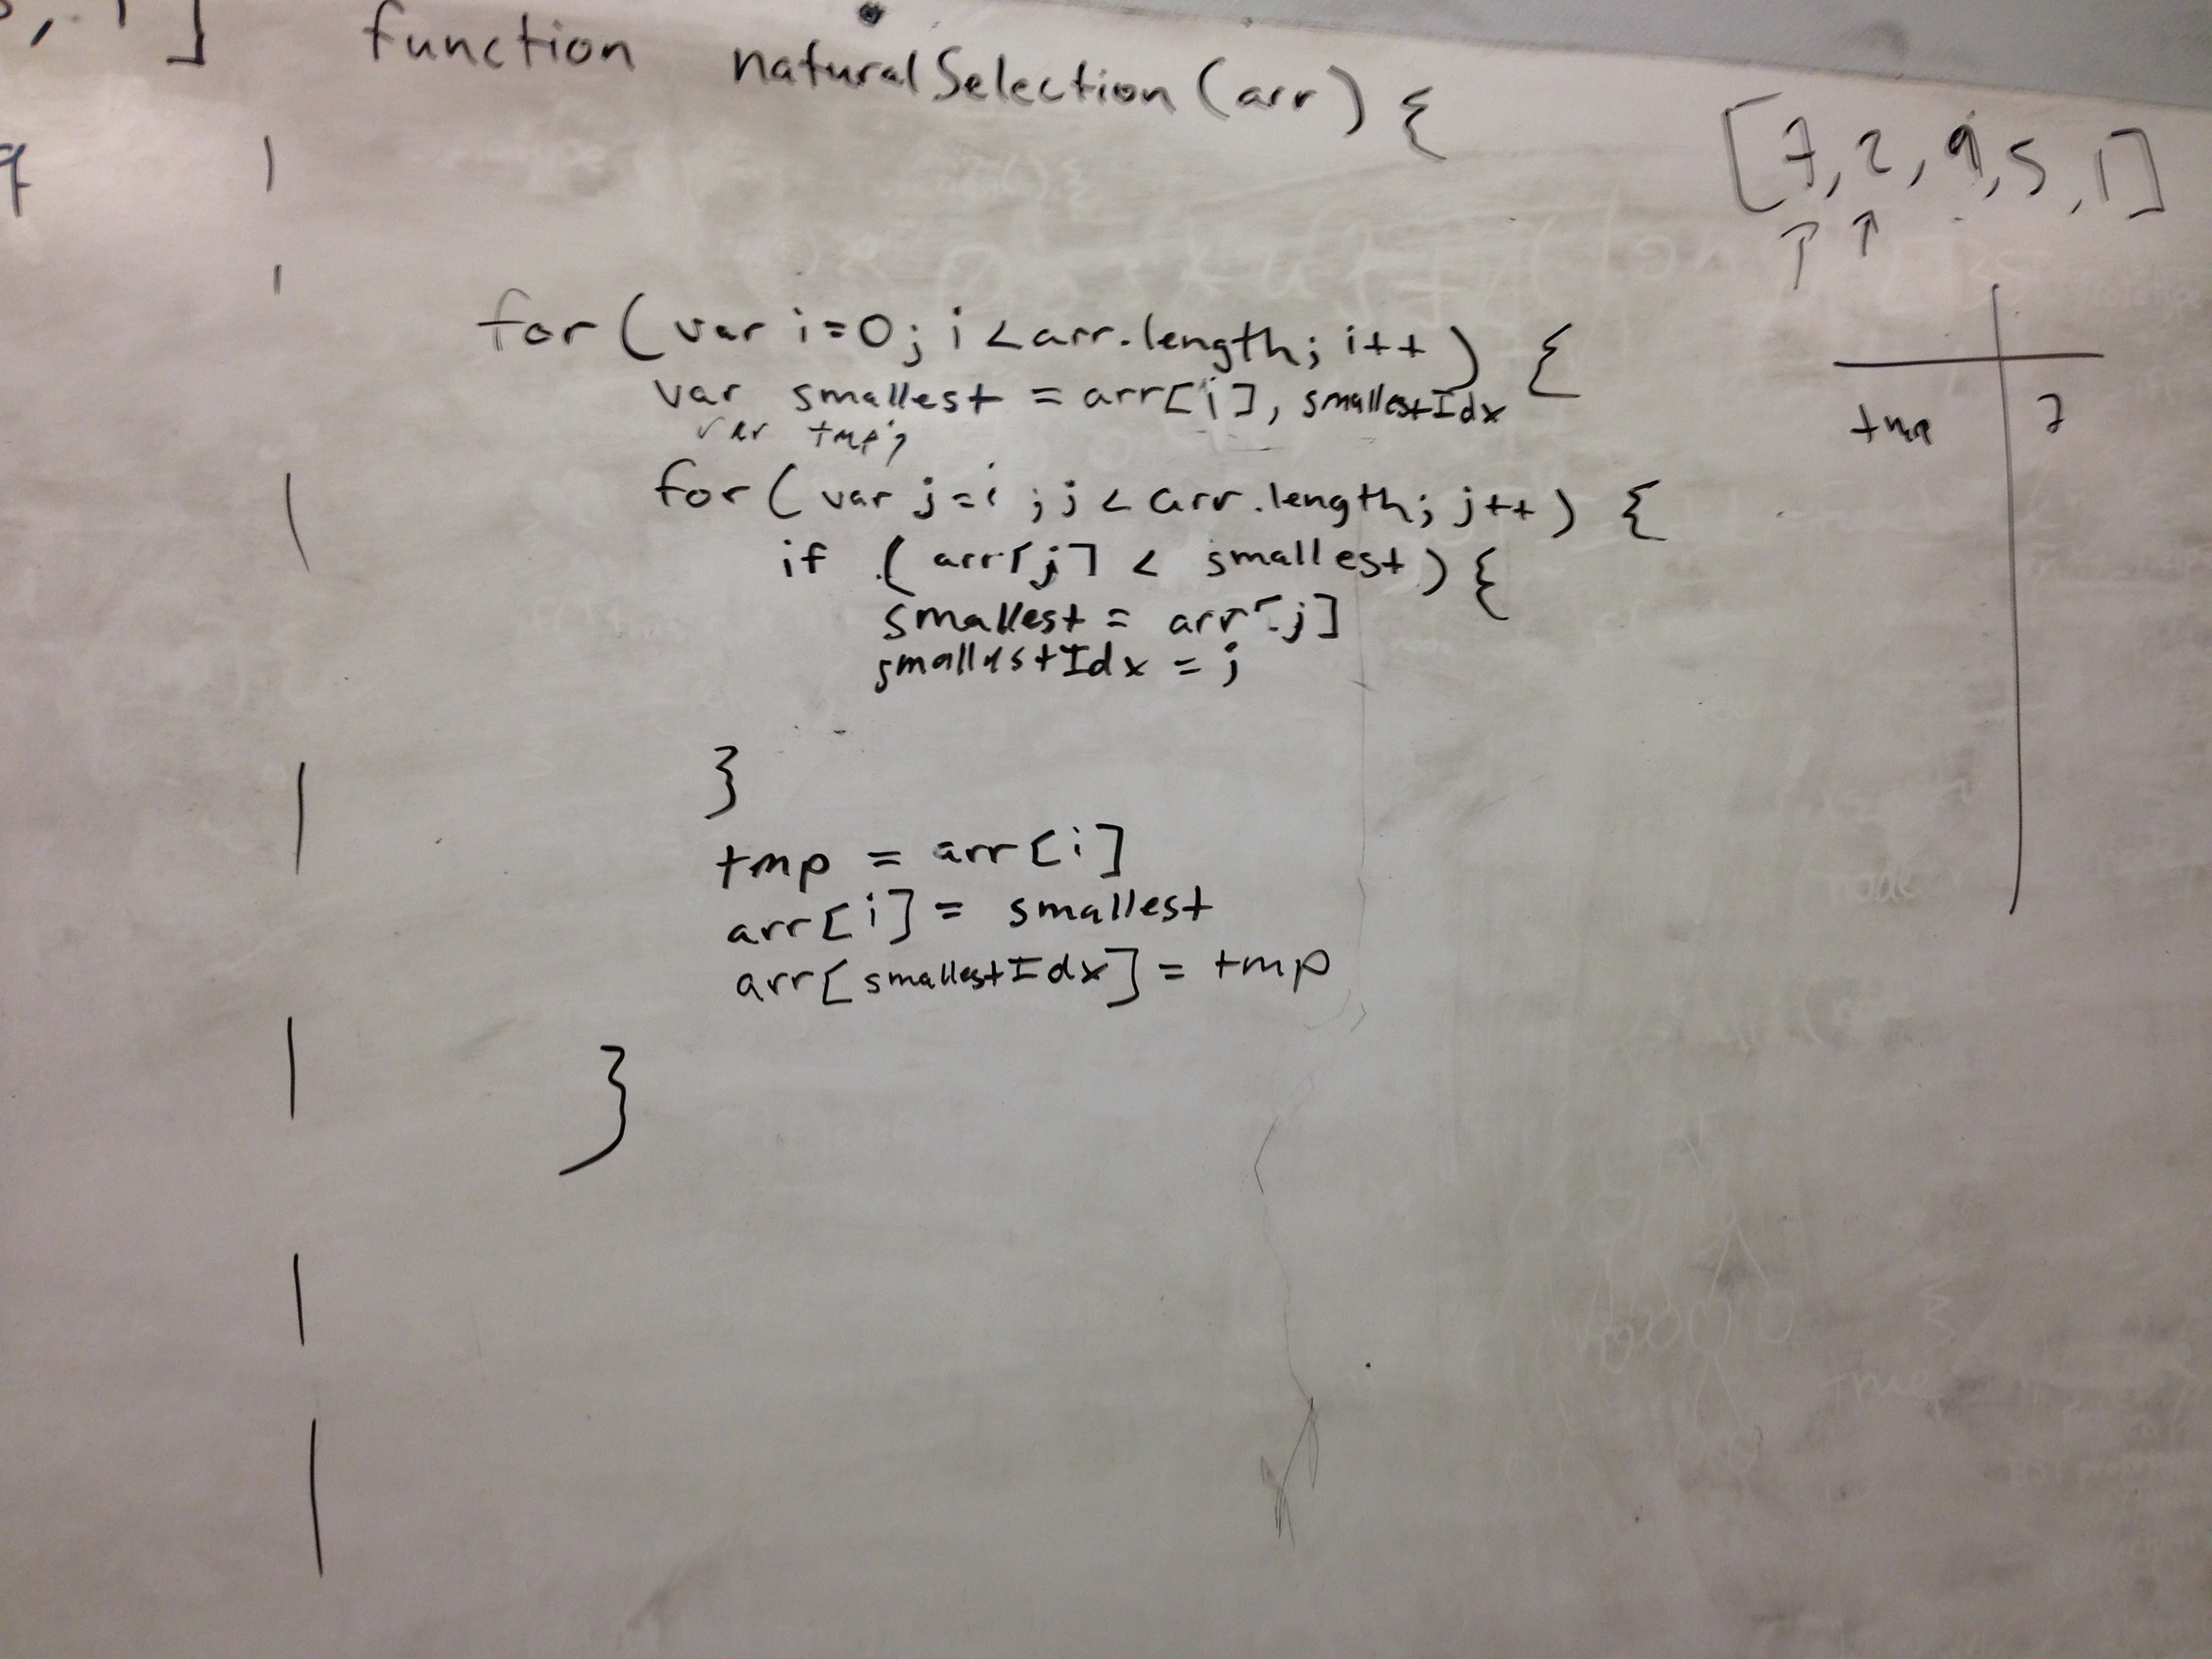 ]
function naturalSelection(arr) {
[7, 2, 9, 5, 1]
9
for (var i=0; i < arr.length; i++) {
var smallest = arr[i], smallestIdx
var tmp;
for (var j=i ; j < arr.length; j++) {
if (arr[j] < smallest) {
smallest = arr[j]
smallestIdx = j
}
tmp = arr[i]
arr[i] = smallest
arr[smallestIdx] = tmp
}
tmp 7